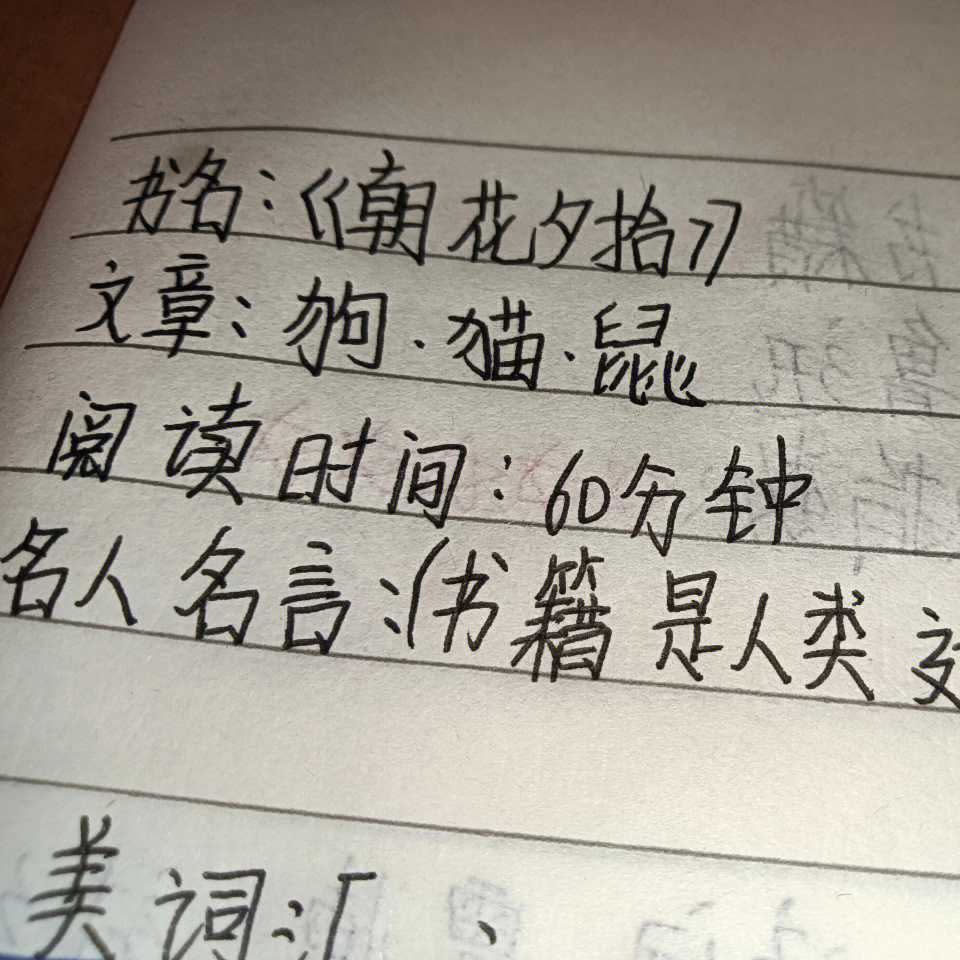 书名：《朝花夕拾》
文章：狗·猫·鼠
阅读时间：60分钟
名人名言：(书籍是人类
美词：「